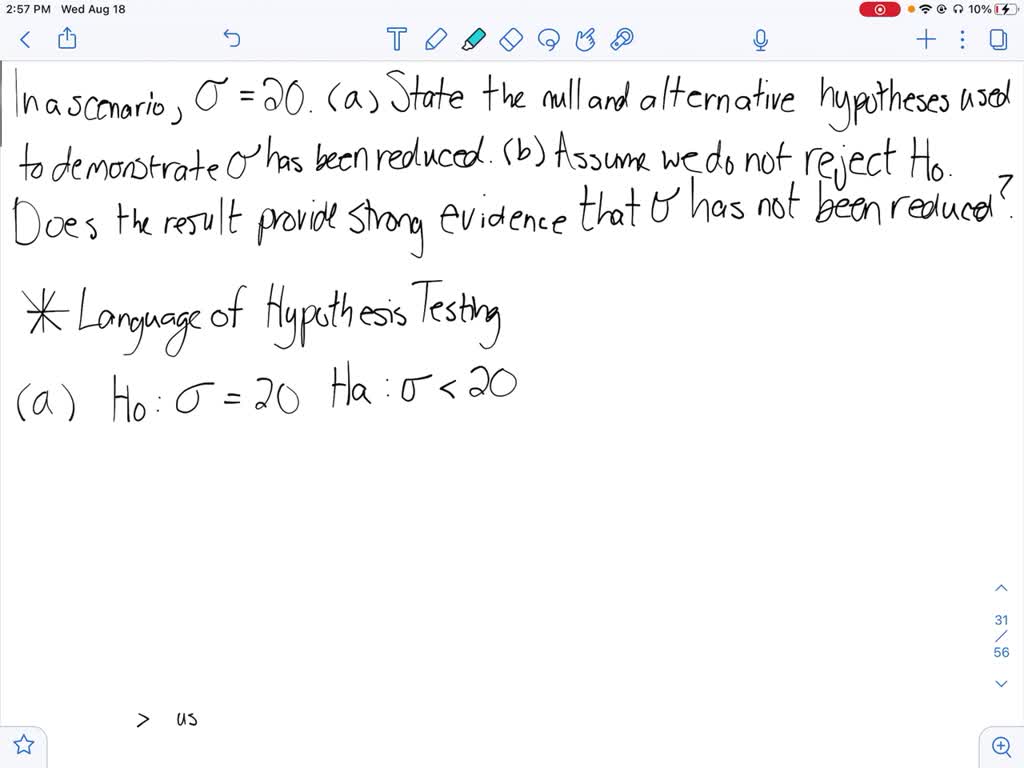 2:57 PM Wed Aug 18
10%
In a scenario, σ = 20. (a) State the null and alternative hypotheses used
to demonstrate σ has been reduced. (b) Assume we do not reject Ho.
Does the result provide strong evidence that σ has not been reduced?
* Language of Hypothesis Testing
(a) Ho: σ = 20 Ha: σ < 20
31
/
56
> us